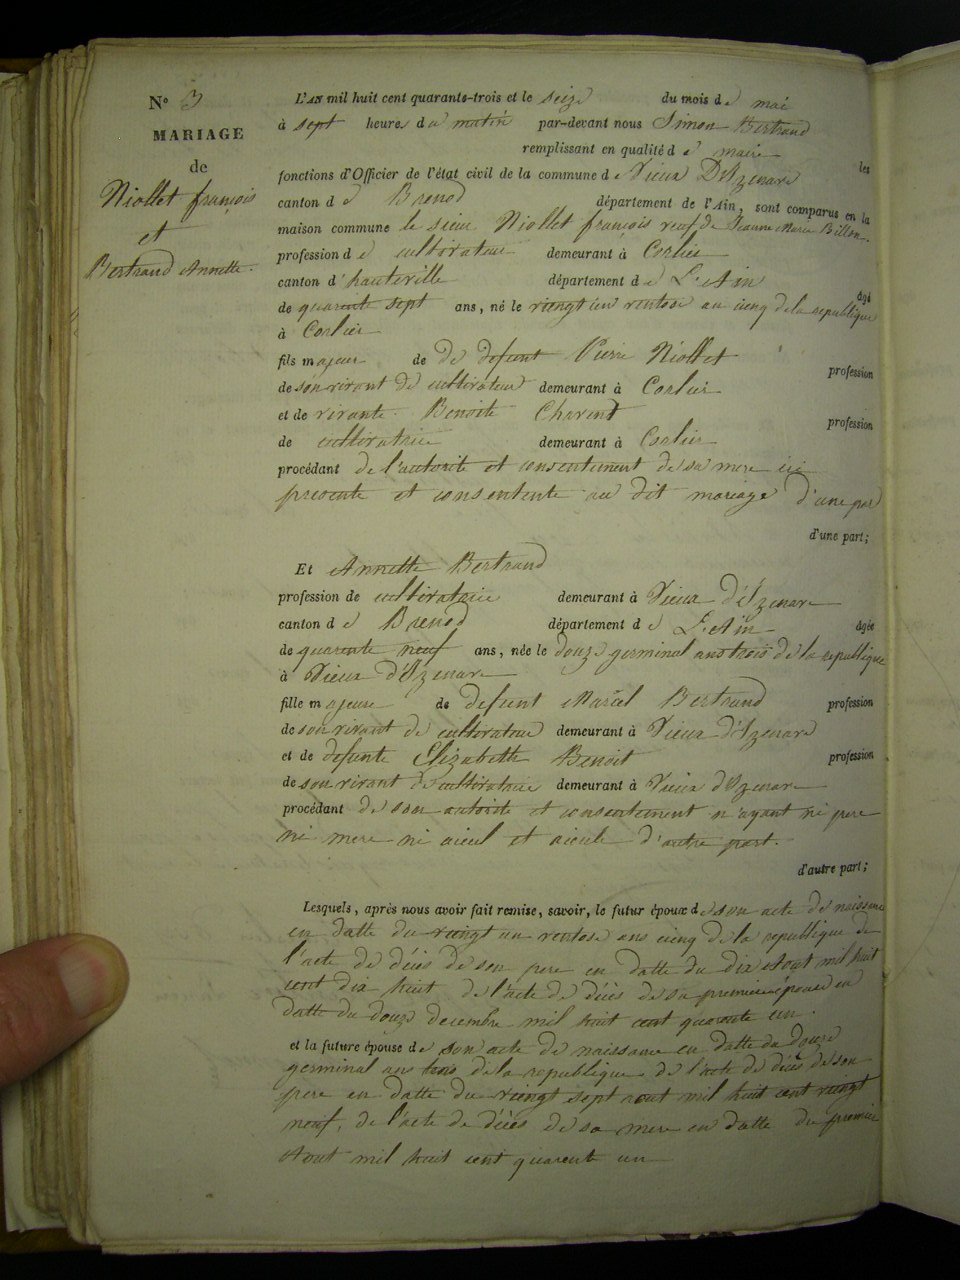 N° 3
MARIAGE
de
Niollet françois
et
Bertrand Annette.
L'AN mil huit cent quarante-trois et le seize du mois de mai
à sept heures du matin par-devant nous Simon Bertrand
remplissant en qualité de maire les
fonctions d'Officier de l'état civil de la commune de Vieux D'Izenave
canton de Brenod département de l'Ain, sont comparus en la
maison commune le sieur Niollet françois veuf de Jeanne Marie Billon.
profession de cultivateur demeurant à Corlier
canton d'hauteville département de L'Ain âgé
de quarente sept ans, né le viengt un ventose an cinq de la republique
à Corlier
fils majeur de de defunt Pierre Niollet profession
de son vivant de cultivateur demeurant à Corlier
et de vivante Benoite Charent profession
de cultivatrice demeurant à Corlier
procédant de l'autorité et consentement de sa mere ici
presente et consentente au dit mariage d'une part
d'une part;
Et Annette Bertrand
profession de cultivatrice demeurant à Vieux d'Izenave
canton de Brenod département de L'Ain âgée
de quarente neuf ans, née le douze germinal ans trois de la republique
à Vieux d'Izenave
fille majeure de defunt Marcel Bertrand profession
de son vivant de cultivateur demeurant à Vieux d'Izenave
et de defunte Elizabeth Benoit profession
de son vivant de cultivatrice demeurant à Vieux d'Izenave
procédant de son autorité et consentement n'ayant ni pere
ni mere ni aieul et aieule d'autre part.
d'autre part;
Lesquels, après nous avoir fait remise, savoir, le futur époux de son acte de naissance
en datte du viengt un ventose ans cinq de la republique de
l'acte de déces de son pere en datte du dix Aout mil huit
cent dix huit de l'acte de déces de sa premiere épouse en
datte du douze decembre mil huit cent quarente un.
et la future épouse de son acte de naissance en datte du douze
germinal ans trois de la republique de l'acte de déces de son
pere en datte du viengt sept aout mil huit cent viengt
neuf, de l'acte de déces de sa mere en datte du premier
Aout mil huit cent quarente un